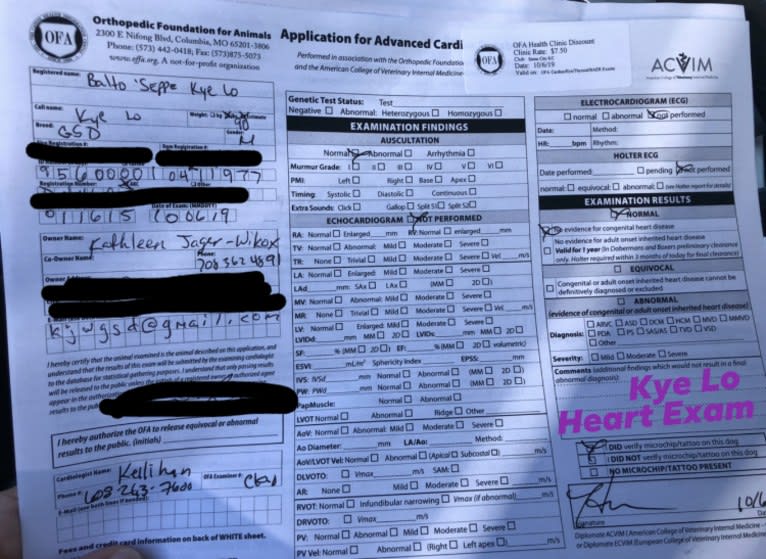 OFA
Orthopedic Foundation for Animals
2300 E Nifong Blvd, Columbia, MO 65201-3806
Phone: (573) 442-0418; Fax: (573)875-5073
www.offa.org A not-for-profit organization
Registered name:
Balto 'Seppe Kye Lo
Call name:
Kye Lo
Breed:
GSD
Gender:
M
Registration #:
Dam Registration #:
956000010471977
Registration Number:
Date of Exam: (MMDDYY)
911615 100619
Owner Name:
Kathleen Jager-Wilcox
Co-Owner Name:
Phone:
708 362 4891
kjwgsd@gmail.com
I hereby certify that the animal examined is the animal described on this application, and
understand that the results of this exam will be submitted by the examining cardiologist
to the database for statistical gathering purposes. I understand that only passing results
will be released to the public unless the
appear in the
results to the
I hereby authorize the OFA to release equivocal or abnormal
results to the public. (initials)
Cardiologist Name:
Kellihan
OFA Examiner #:
Phone #:
608-263-7600
E-Mail (use both lines if needed)
Fees and credit card information on back of WHITE sheet.
Application for Advanced Cardi
Performed in association with the Orthopedic Foundatio
and the American College of Veterinary Internal Medicine
OFA
OFA Health Clinic Discount
Clinic Rate: $7.50
Date: 10/6/19
ACVIM
American College of Veterinary Internal Medicine
Genetic Test Status: Test
Negative Abnormal: Heterozygous Homozygous
EXAMINATION FINDINGS
AUSCULTATION
Normal Abnormal Arrhythmia
Murmur Grade: I II III IV V VI
PMI: Left Right Base Apex
Timing: Systolic Diastolic Continuous
Extra Sounds: Click Gallop Split S1 Split S2
ECHOCARDIOGRAM NOT PERFORMED
RA: Normal Enlarged mm RV: Normal enlarged mm
TV: Normal Abnormal: Mild Moderate Severe
TR: None Trivial Mild Moderate Severe Vel m/s
LA: Normal Enlarged: Mild Moderate Severe
LAd mm SAx LAx (MM 2D)
MV: Normal Abnormal: Mild Moderate Severe
MR: None Trivial Mild Moderate Severe Vel m/s
LV: Normal Enlarged: Mild Moderate Severe
LVIDd: mm (MM 2D) LVIDs: mm (MM 2D)
SF: % (MM 2D) EF: % (MM 2D volumetric)
ESVI mL/m² Sphericity Index EPSS: mm
IVS: IVSd mm Normal Abnormal (MM 2D)
PW: PWd mm Normal Abnormal (MM 2D)
PapMuscle: Normal Abnormal
LVOT Normal Abnormal Ridge Other
AoV: Normal Abnormal: Mild Moderate Severe
Ao Diameter: mm LA/Ao: Method:
AoV/LVOT Vel: Normal Abnormal (Apical Subcostal) m/s
DLVOTO: Vmax m/s SAM:
AR: None Mild Moderate Severe m/s
RVOT: Normal Infundibular narrowing Vmax (if abnormal) m/s
DRVOTO: Vmax m/s
PV: Normal Abnormal Mild Moderate Severe
PV Vel: Normal Abnormal (Right Left apex) m/s
ELECTROCARDIOGRAM (ECG)
normal abnormal not performed
Date: Method:
HR: bpm Rhythm:
HOLTER ECG
Date performed pending not performed
normal: equivocal: abnormal: (see Holter report for details)
EXAMINATION RESULTS
NORMAL
No evidence for congenital heart disease
No evidence for adult onset inherited heart disease
Valid for 1 year (In Dobermans and Boxers preliminary clearance
only. Holter required within 3 months of today for final clearance)
EQUIVOCAL
Congenital or adult onset inherited heart disease cannot be
definitively diagnosed or excluded
ABNORMAL
(evidence of congenital or adult onset inherited heart disease)
Diagnosis: ARVC ASD DCM HCM MVD MMVD
PDA PS SAS/AS TVD VSD
Other
Severity: Mild Moderate Severe
Comments (additional findings which would not result in a final
abnormal diagnosis):
Kye Lo
Heart Exam
DID verify microchip/tattoo on this dog
I DID NOT verify microchip/tattoo on this dog
NO MICROCHIP/TATTOO PRESENT
10/6
Signature
Diplomate ACVIM (American College of Veterinary Internal Medicine -
or Diplomate ECVIM (European College of Veterinary Internal Medicine -